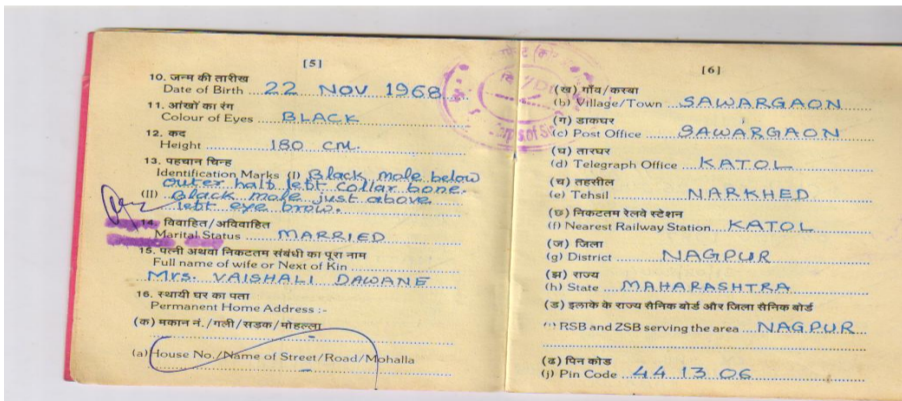 [5]
10. जन्म की तारीख
Date of Birth 22 NOV 1968
11. आंखों का रंग
Colour of Eyes BLACK
12. कद
Height 180 CM.
13. पहचान चिन्ह
Identification Marks (I) Black mole below
outer half left collar bone.
(II) Black mole just above
left eye brow.
14. विवाहित/अविवाहित
Marital Status MARRIED
15. पत्नी अथवा निकटतम संबंधी का पूरा नाम
Full name of wife or Next of Kin
Mrs. VAISHALI DAWANE
16. स्थायी घर का पता
Permanent Home Address :-
(क) मकान नं./गली/सडक/मोहल्ला
(a) House No./Name of Street/Road/Mohalla
[6]
(ख) गाँव/कस्बा
(b) Village/Town SAWARGAON
(ग) डाकघर
(c) Post Office SAWARGAON
(घ) तारघर
(d) Telegraph Office KATOL
(च) तहसील
(e) Tehsil NARKHED
(छ) निकटतम रेलवे स्टेशन
(f) Nearest Railway Station KATOL
(ज) जिला
(g) District NAGPUR
(झ) राज्य
(h) State MAHARASHTRA
(ड) इलाके के राज्य सैनिक बोर्ड और जिला सैनिक बोर्ड
RSB and ZSB serving the area NAGPUR
(ढ) पिन कोड
(j) Pin Code 44 13 06